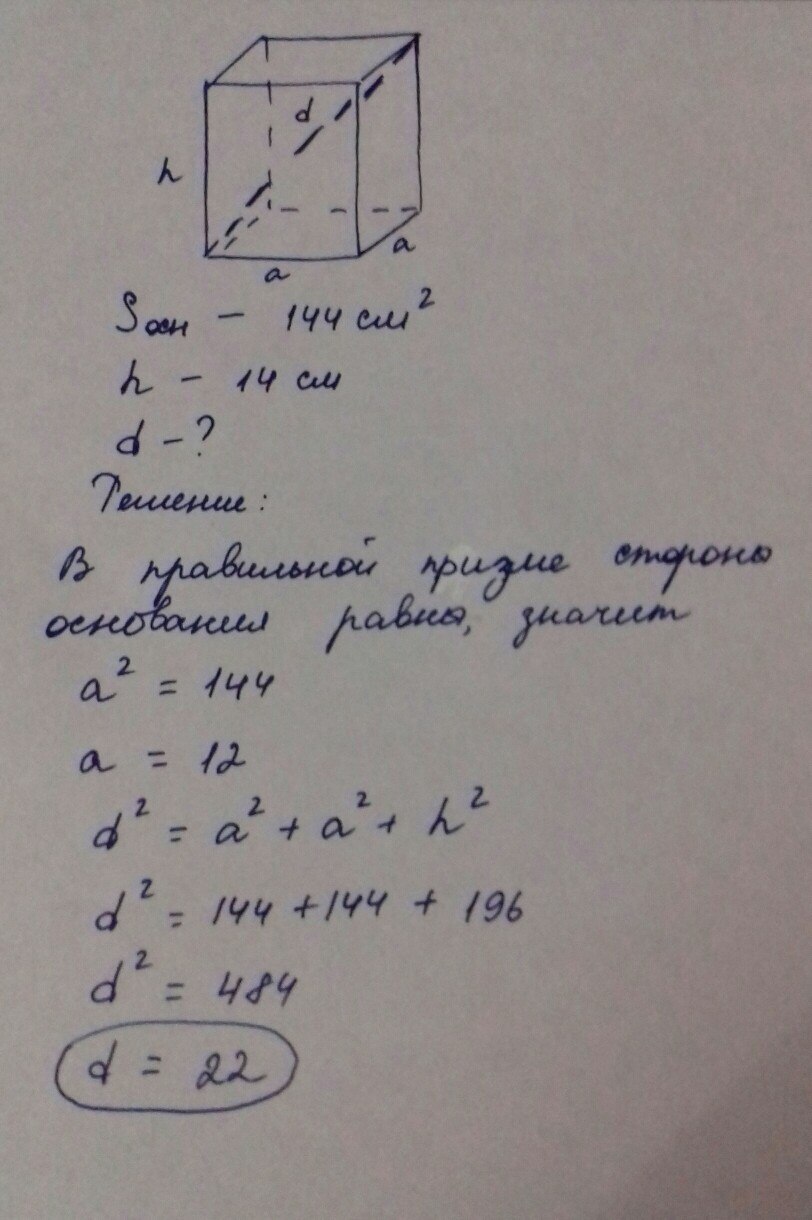 d
h
a
a
Sосн - 144 см²
h - 14 см
d - ?
Решение:
В правильной призме стороны
основания равны, значит
a² = 144
a = 12
d² = a² + a² + h²
d² = 144 + 144 + 196
d² = 484
d = 22